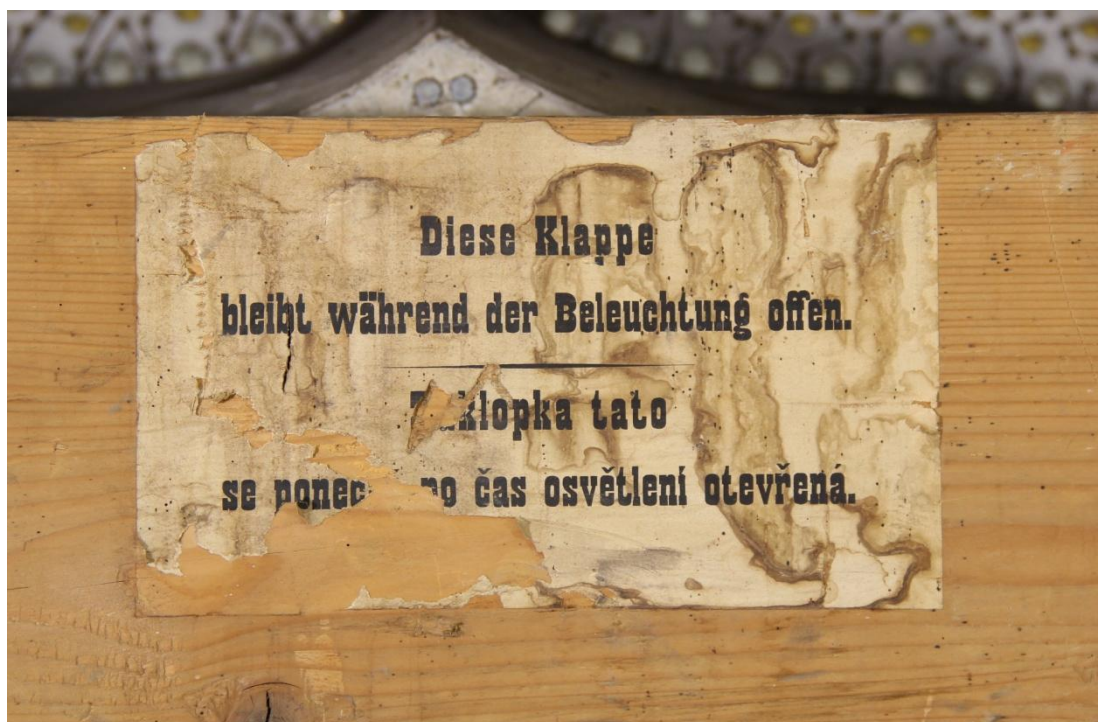 Diese Klappe
bleibt während der Beleuchtung offen.
tato
se po čas osvětlení otevřená.